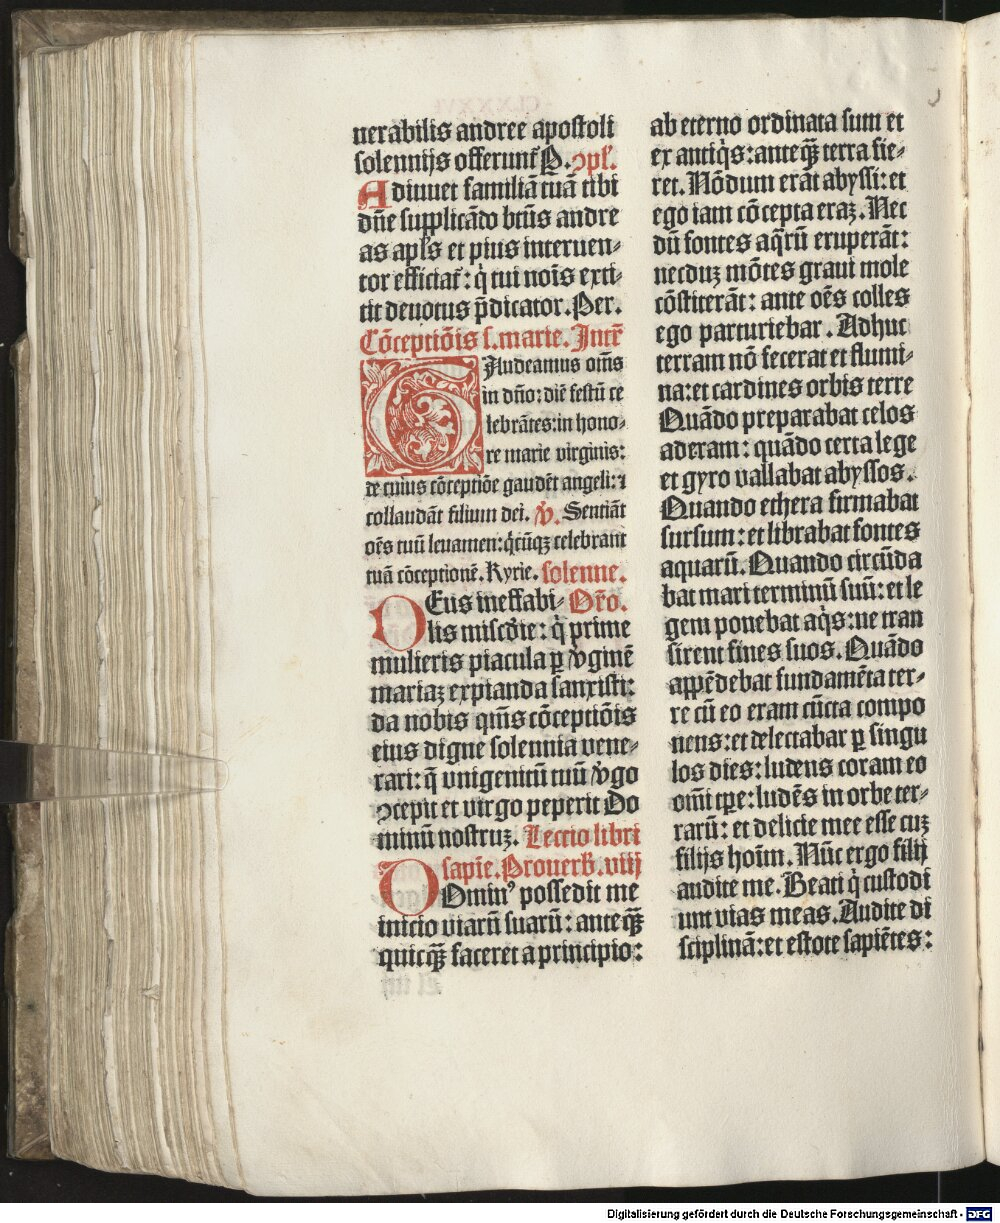 uerabilis andree apostoli
solennijs offerunt᷑ P. ↄpl᷑.
Adiuuet familiã tuã tibi
dñe supplicãdo btũs andre
as apl᷑s et pius interuen-
tor efficiat᷑: q̇ tui noĩs exti-
tit deuotus p̃dicator. Per.
Cõceptiõis s. marie. Intr̃
GAudeamus om̃s
in dño: diẽ festũ ce
lebrãtes: in hono-
re marie virginis:
de cuius cõceptiõe gaudẽt angeli: ⁊
collaudãt filium dei. ℣. Sentiãt
oẽs tuũ leuamen: q̃cũqꝫ celebrant
tuã cõceptionẽ. Kyrie. solenne.
DEus ineffabi- Or̃o.
lis mi&#115;cd̓ie: q̃ prime
mulieris piacula ꝑ v̓ginẽ
mariaꝫ expianda sanxisti:
da nobis qm̃s cõceptiõis
eius digne solennia vene-
rari: q̃ vnigenitũ tuũ v̓go
ↄcepit et virgo peperit Do
minũ nostruꝫ. Lectio libri
sapiẽ. Prouerb̃. viij
DOmin⁹ possedit me
inicio viarũ suarũ: anteqꝫ̃
quicqꝫ̃ faceret a principio:
ab eterno ordinata sum et
ex antiq̇s: anteqꝫ̃ terra fie-
ret. Nõdum erãt abyssi: et
ego iam cõcepta eraꝫ. Nec
dũ fontes aq̃rũ eruperãt:
necduꝫ mõtes graui mole
cõstiterãt: ante oẽs colles
ego parturiebar. Adhuc
terram nõ fecerat et flumi-
na: et cardines orbis terre
Quãdo preparabat celos
aderam: quãdo certa lege
et gyro vallabat abyssos.
Quando ethera firmabat
sursum: et librabat fontes
aquarũ. Quando circũda
bat mari terminũ suũ: et le
gem ponebat aq̇s: ne tran
sirent fines suos. Quãdo
appẽdebat fundamẽta ter-
re cũ eo eram cũcta compo
nens: et delectabar ꝑ singu
los dies: ludens coram eo
om̃i tꝑe: ludẽs in orbe ter-
rarũ: et delicie mee esse cuꝫ
filijs hoĩm. Nũc ergo filij
audite me. Beati q̇ custodi
unt vias meas. Audite di
sciplinã: et estote sapiẽtes:
Digitalisierung gefördert durch die Deutsche Forschungsgemeinschaft - DFG